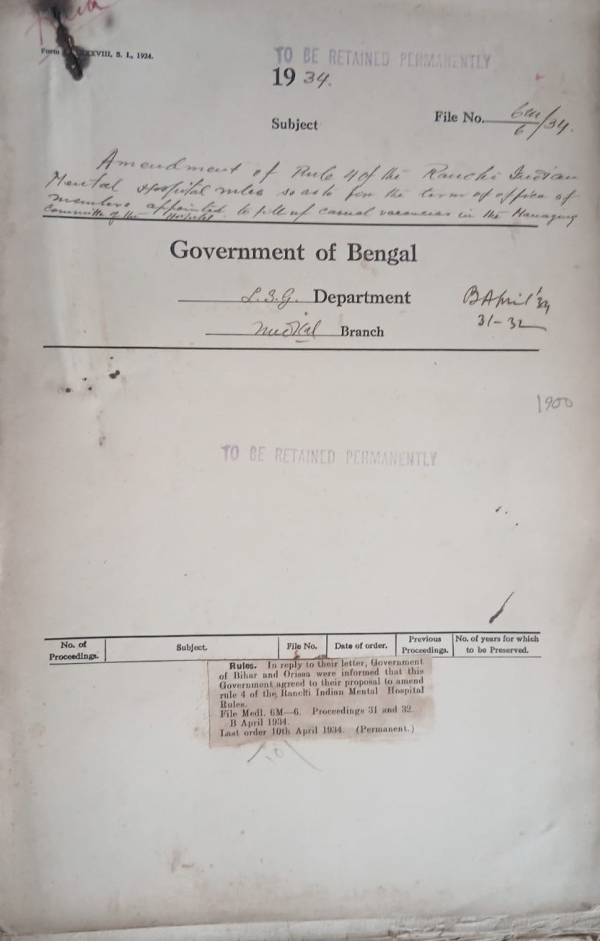 XXVIII, S. I., 1924.
TO BE RETAINED PERMANENTLY
1934.
File No. 6M/6/34.
Subject
Amendment of Rule 4 of the Ranchi Indian
Mental Hospital rules so as to fix the term of office of
members appointed to fill up casual vacancies in the Managing
Committee of the Hospital.
Government of Bengal
L.S.G. Department
B April '34
31-32
Medical Branch
1900
TO BE RETAINED PERMANENTLY
No. of Proceedings. Subject. File No. Date of order. Previous Proceedings. No. of years for which to be Preserved.
Rules. In reply to their letter, Government
of Bihar and Orissa were informed that this
Government agreed to their proposal to amend
rule 4 of the Ranchi Indian Mental Hospital
Rules.
File Medl. 6M—6. Proceedings 31 and 32.
B April 1934.
Last order 10th April 1934. (Permanent.)